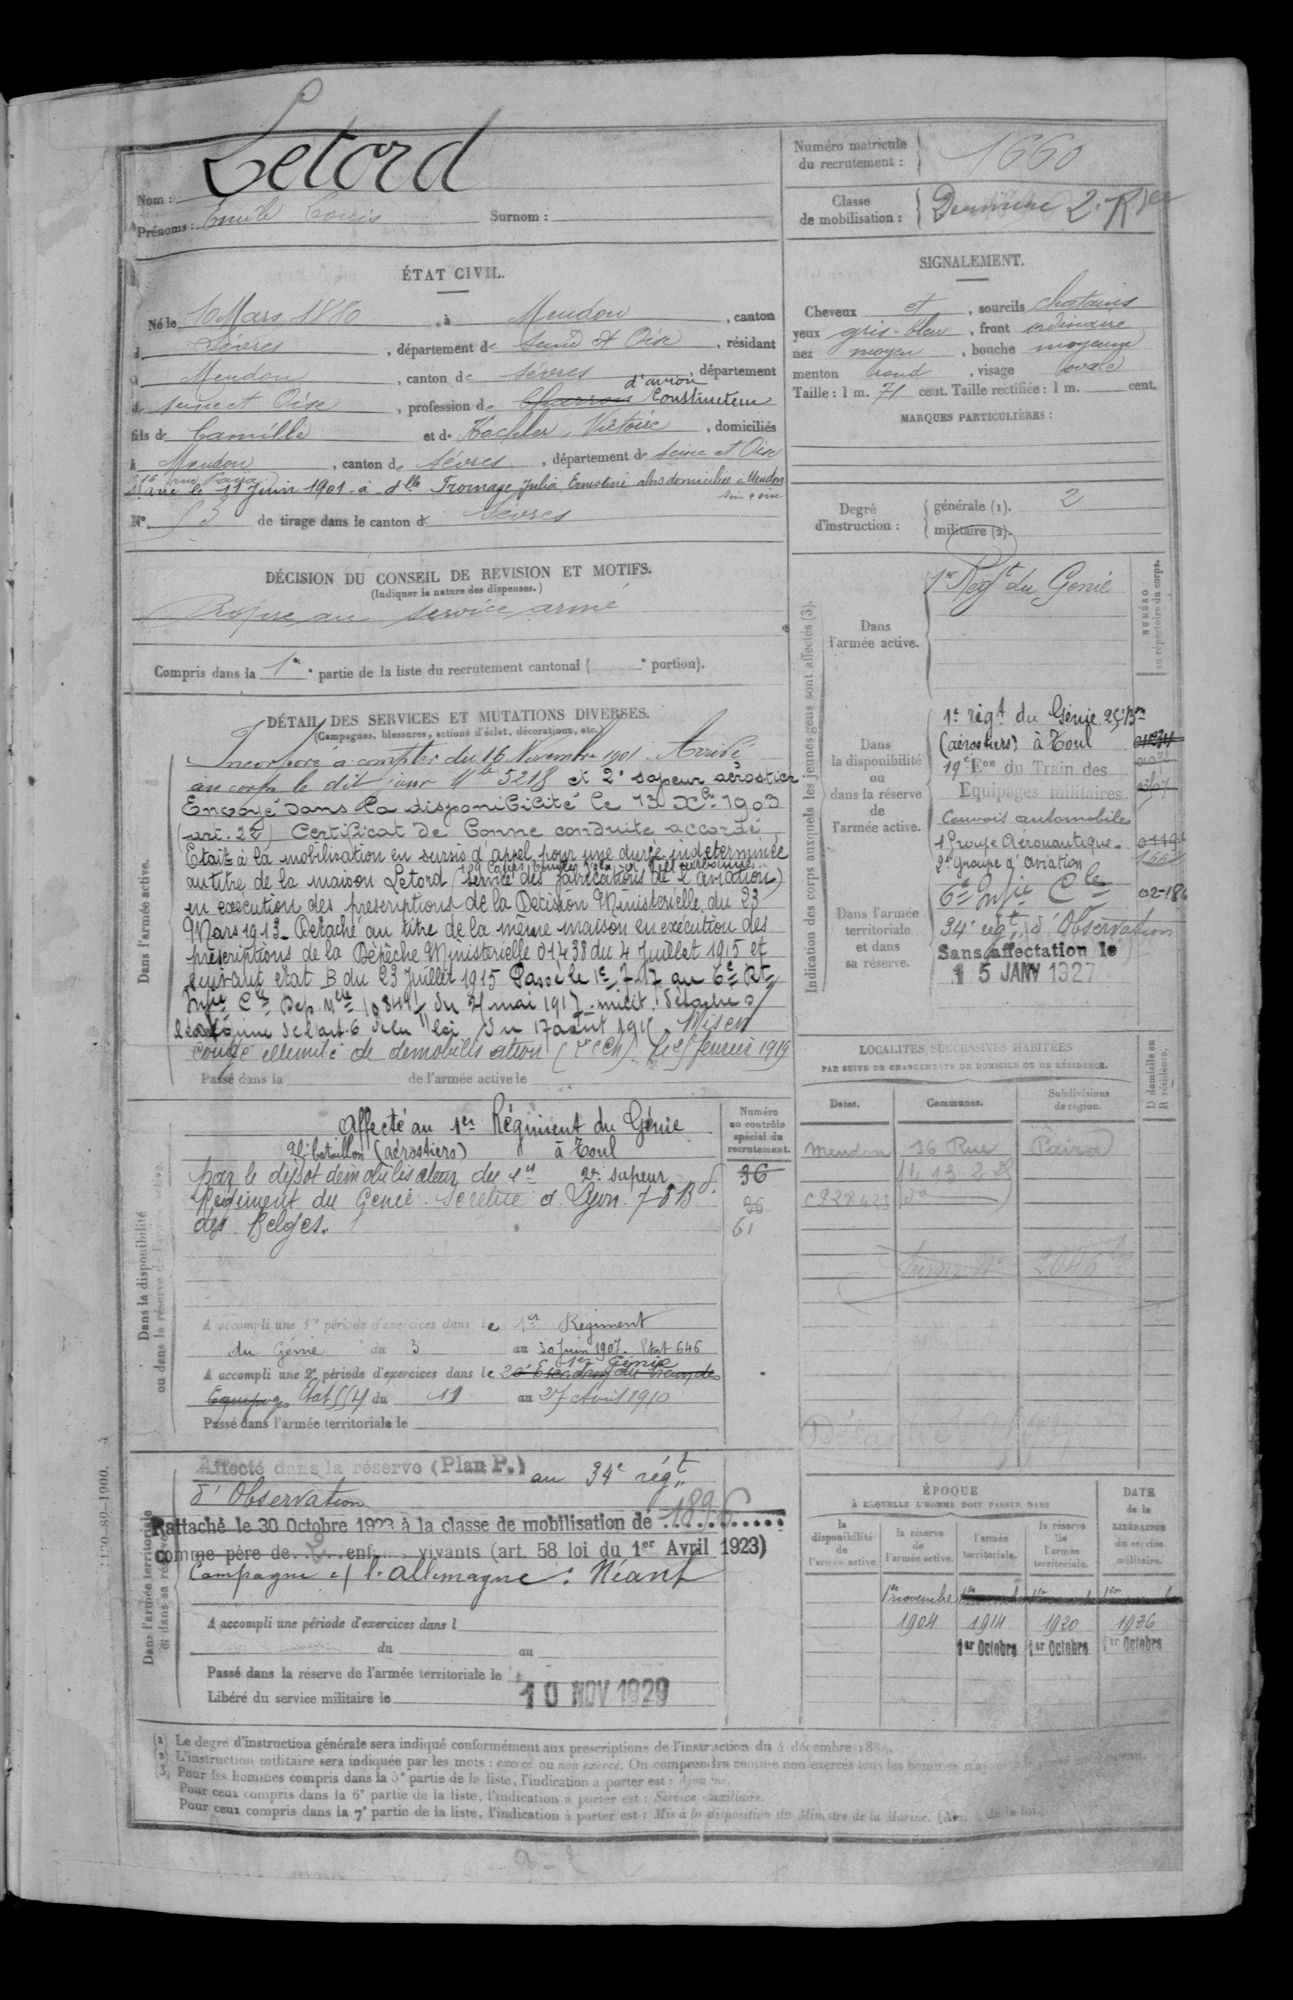 Nom : Letord
Prénoms : Emile Louis Surnom :
Numéro matricule
du recrutement : 1660
Classe
de mobilisation : Dernière 2e Rve
ÉTAT CIVIL.
Né le 16 Mars 1880, à Meudon, canton
d Sèvres, département de Seine et Oise, résidant
à Meudon, canton de Sèvres, département
d seine et Oise, profession de Charron Constructeur d'avion
fils de Camille et de Kachler, Victoire, domiciliés
à Meudon, canton de Sèvres, département de seine et Oise
16 rue Païra
Marié le 11 Juin 1901 à dlle Fromage Julia Ernestine alors domiciliée à Meudon
Seine & Oise
N° 53 de tirage dans le canton de Sèvres
SIGNALEMENT.
Cheveux et, sourcils chatains
yeux gris-bleu, front ordinaire
nez moyen, bouche moyenne
menton rond, visage ovale
Taille : 1 m. 71 cent. Taille rectifiée : 1 m. cent.
MARQUES PARTICULIÈRES :
Degré
d'instruction :
générale (1). 2
militaire (2).
DÉCISION DU CONSEIL DE REVISION ET MOTIFS.
(Indiquer la nature des dispenses.)
Propre au service armé
Compris dans la 1re partie de la liste du recrutement cantonal ( e portion).
DÉTAIL DES SERVICES ET MUTATIONS DIVERSES.
(Campagnes, blessures, actions d'éclat, décorations, etc.)
Dans l'armée active.
Incorporé à compter du 16 Novembre 1901. Arrivé
au corps le dit jour Mle 5218 et 2e sapeur aérostier
Envoyé dans la disponibilité le 13 Xbre 1903
(art. 22) Certificat de bonne conduite accordé
Etait à la mobilisation en sursis d'appel pour une durée indéterminée
au titre de la maison Letord (service des fabrications de l'aviation)
en execution des prescriptions de la Décision Ministérielle du 23
Mars 1913. Détaché au titre de la même maison en exécution des
prescriptions de la Dépêche Ministerielle 01438 du 4 Juillet 1915 et
suivant etat B du 23 Juillet 1915 Passé le 1er 7-17 au 6e Rt
Infie Cle Dep. Mlle 10844 du mai 1917. milit. détaché
de l'art. 6 de la loi du 17 août 1915. Mis en
congé illimité de démobilisation le 25 février 1919
Passé dans la de l'armée active le
Indication des corps auxquels les jeunes gens sont affectés (3).
NUMÉRO
au répertoire du corps.
Dans
l'armée active.
1er Regt du Génie
Dans
la disponibilité
ou
dans la réserve
de
l'armée active.
1er régt du Génie 25e Bon
(aérostiers) à Toul
19e Eon du Train des
Equipages militaires
Convois automobiles
1 Groupe Aéronautique
2e groupe d'aviation
Dans l'armée
territoriale
et dans
sa réserve.
6e Infie Cle 02-186
34e régt d'Observation
Sans affectation le
15 JANV 1927
LOCALITÉS SUCCESSIVES HABITÉES
PAR SUITE DE CHANGEMENTS DE DOMICILE OU DE RÉSIDENCE.
Dates. Communes. Subdivisions
de région.
D domicile ou
R résidence.
Meudon 16 Rue Païra
Dans la disponibilité
ou dans la réserve de l'armée active.
Numéro
au contrôle
spécial du
recrutement.
Affecté au 1er Régiment du Génie
25e bataillon (aérostiers) à Toul
2e sapeur
par le dépot démobilisateur du 1er 36
Régiment du Genie. Se retire à Lyon. 78 Bd. 26
des Belges. 61
A accompli une 1re période d'exercices dans le 1er Régiment
du Génie du 3 au 30 juin 1907. Etat 646
1er Génie
A accompli une 2e période d'exercices dans le 20e Escadron du train des
Equipages Etat du 11 au 27 Avril 1910
Passé dans l'armée territoriale le
Dans l'armée territoriale
et dans sa réserve
Affecté dans la réserve (Plan P.) au 34e régt
d'Observation
Rattaché le 30 Octobre 1923 à la classe de mobilisation de 1896
comme père de 2 enfants vivants (art. 58 loi du 1er Avril 1923)
Campagne c/ l'allemagne : Néant
A accompli une période d'exercices dans l
du au
Passé dans la réserve de l'armée territoriale le
Libéré du service militaire le 10 NOV 1929
ÉPOQUE
À LAQUELLE L'HOMME DOIT PASSER DANS
DATE
de la
LIBÉRATION
du service
militaire.
la
disponibilité
de
l'armée active.
la réserve
de
l'armée active.
l'armée
territoriale.
la réserve
de
l'armée
territoriale.
1er novembre
1904 1914 1920 1926
1er Octobre 1er Octobre 1er Octobre
(1) Le degré d'instruction générale sera indiqué conformément aux prescriptions de l'instruction du 4 décembre 1889.
(2) L'instruction militaire sera indiquée par les mots : exercé ou non exercé. On comprendra comme non exercés tous les hommes
(3) Pour les hommes compris dans la 5e partie de la liste, l'indication à porter est : Ajourné.
Pour ceux compris dans la 6e partie de la liste, l'indication à porter est : Service auxiliaire.
Pour ceux compris dans la 7e partie de la liste, l'indication à porter est : Mis à la disposition du Ministre de la Marine.